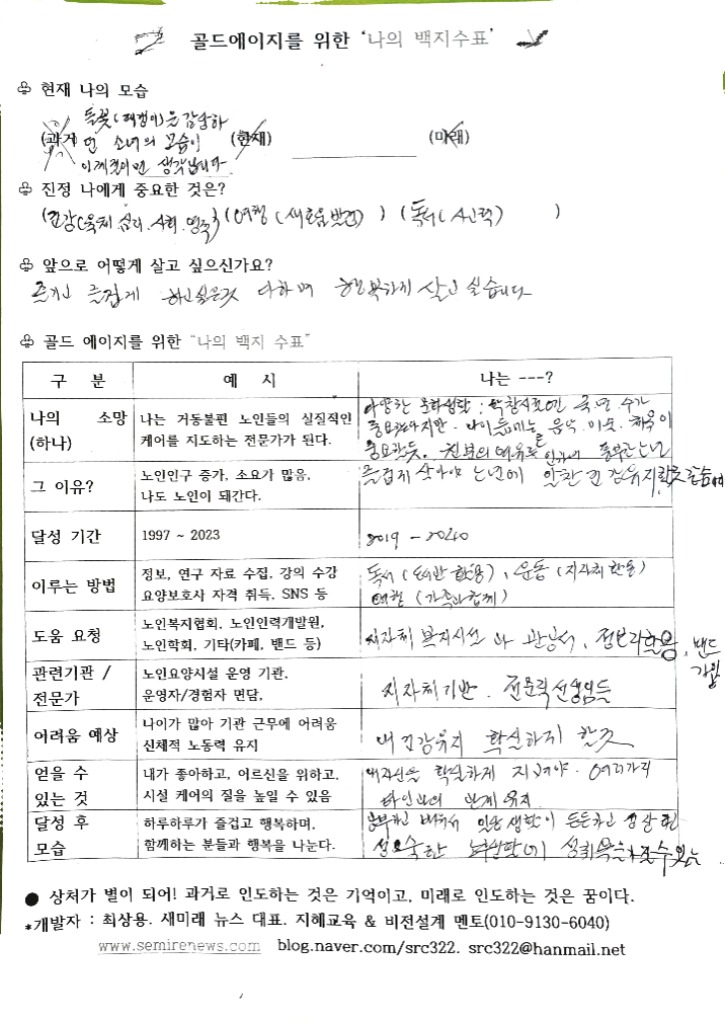 골드에이지를 위한 '나의 백지수표'
현재 나의 모습
들꽃(       )을 감상하
(과거 던 소녀의 모습이 (현재) (미래)
생각납니다.
진정 나에게 중요한 것은?
(건강(육체.심리.사회.영적) (여행 (새로움 발견) ) (독서(사고력) )
앞으로 어떻게 살고 싶으신가요?
즐겁게 하고싶은것 다하며 행복하게 살고 싶습니다
골드 에이지를 위한 "나의 백지 수표"
구 분 예 시 나는 ---?
나의 소망
(하나)
나는 거동불편 노인들의 실질적인
케어를 지도하는 전문가가 된다.
다양한 문화생활 : 학창시절엔 국.영.수가
중요하지만. 나이 음악. 미술. 체육이
중요한듯.
그 이유?
노인인구 증가, 소요가 많음.
나도 노인이 돼간다.
즐겁게 살아야 노년에 알찬 건강유지
달성 기간 1997 ~ 2023 2019 - 2040
이루는 방법
정보, 연구 자료 수집. 강의 수강
요양보호사 자격 취득. SNS 등
독서 ( 활용), 운동 (지자체 활용)
여행 (가족과 함께)
도움 요청
노인복지협회. 노인인력개발원,
노인학회. 기타(카페, 밴드 등)
지자체 복지시설 과 관공서, 정보화활용, 밴드
가입
관련기관 /
전문가
노인요양시설 운영 기관.
운영자/경험자 면담,
지자체기반. 선생님들
어려움 예상
나이가 많아 기관 근무에 어려움
신체적 노동력 유지
내 건강유지 확실하게 할것
얻을 수
있는 것
내가 좋아하고, 어르신을 위하고.
시설 케어의 질을 높일 수 있음
내자신을 확실하게 지켜야.
타인과의 관계 유지
달성 후
모습
하루하루가 즐겁고 행복하며,
함께하는 분들과 행복을 나눈다.
공부하고 배워서 일상생활이 든든하고
● 상처가 별이 되어! 과거로 인도하는 것은 기억이고, 미래로 인도하는 것은 꿈이다.
*개발자 : 최상용. 새미래 뉴스 대표. 지혜교육 & 비전설계 멘토(010-9130-6040)
www.semirenews.com blog.naver.com/src322. src322@hanmail.net